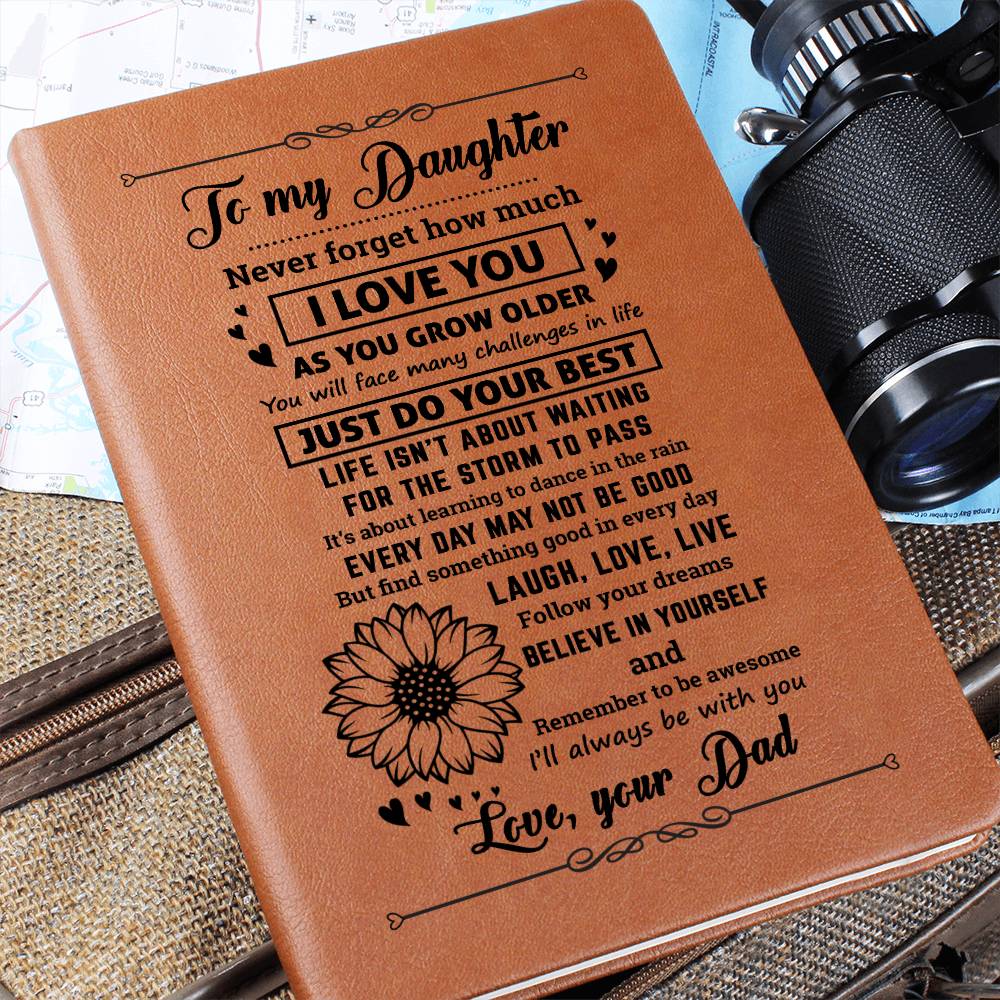 To my Daughter
Never forget how much
I LOVE YOU
AS YOU GROW OLDER
You will face many challenges in life
JUST DO YOUR BEST
LIFE ISN'T ABOUT WAITING
FOR THE STORM TO PASS
It's about learning to dance in the rain
EVERY DAY MAY NOT BE GOOD
But find something good in every day
LAUGH, LOVE, LIVE
Follow your dreams
BELIEVE IN YOURSELF
and
Remember to be awesome
I'll always be with you
Love, your Dad
Parrish
Woodlands G C
Golf Course
Airport
Ranch
Dixie Sky
41
INTRACOASTAL
41
Park
Tampa Bay Chamber of